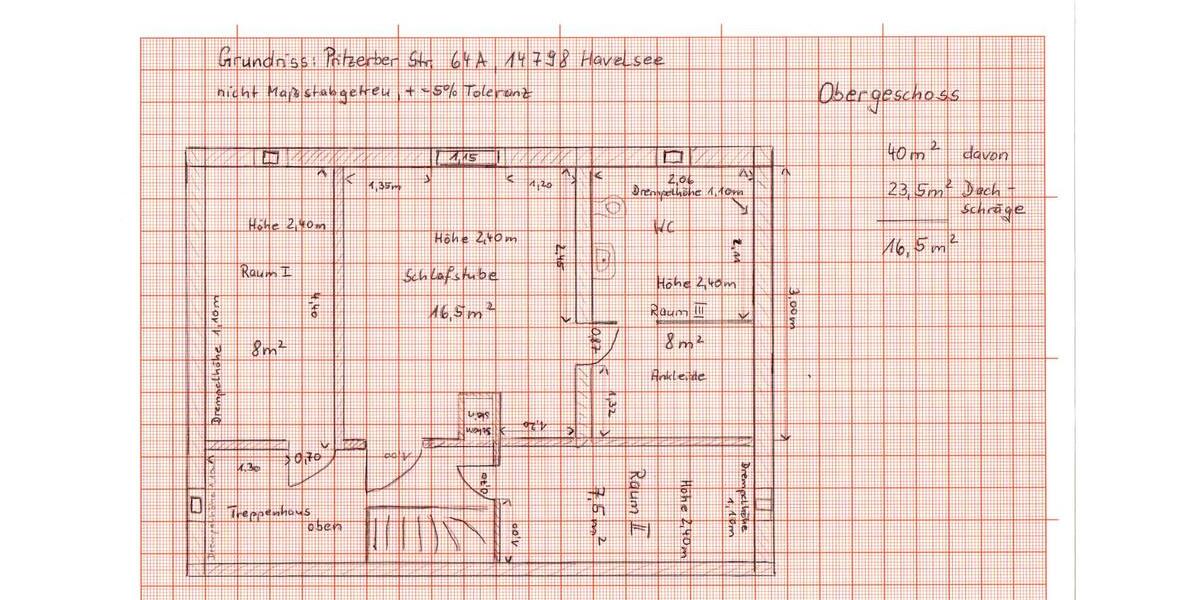 Grundriss: Pritzerber Str. 64A, 14798 Havelsee
nicht Maßstabgetreu, +-5% Toleranz
Obergeschoss
40m² davon
23,5m² Dach-
schräge
16,5m²
1,15
1,35m
1,20
2,06
Drempelhöhe 1,10m
Höhe 2,40m
Raum I
8m²
4,40
Drempelhöhe 1,10m
Höhe 2,40m
Schlafstube
16,5m²
2,45
WC
2,11
Höhe 2,40m
Raum III
8m²
Ankleide
3,00m
0,87
1,32
Schorn
stein
1,20
1,30
0,70
1,00
0,70
Treppenhaus
oben
Drempelhöhe 1,10m
1,00
7,5m²
Raum II
Höhe 2,40m
Drempelhöhe
1,10m